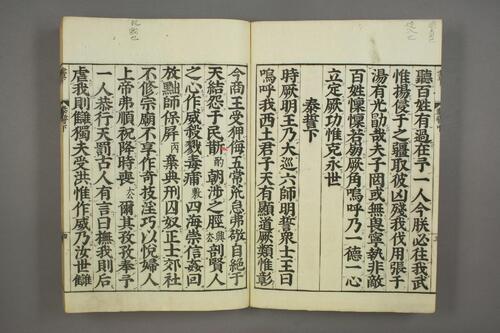 聽百姓有過在予一人今朕必往我武
惟揚侵于之疆取彼凶殘我伐用張于
湯有光勖哉夫子罔或無畏寧執非敵
百姓懍懍若崩厥角嗚呼乃一德一心
立定厥功惟克永世
泰誓下
時厥明王乃大巡六師明誓衆士王曰
嗚呼我西土君子天有顯道厥類惟彰
今商王受狎侮五常荒怠弗敬自絕于
天結怨于民斮朝涉之脛剖賢人
之心作威殺戮毒痡四海崇信姦回
放黜師保屏棄典刑囚奴正士郊社
不修宗廟不享作奇技淫巧以悅婦人
上帝弗順祝降時喪爾其孜孜奉予
一人恭行天罰古人有言曰撫我則后
虐我則讎獨夫受洪惟作威乃汝世讎